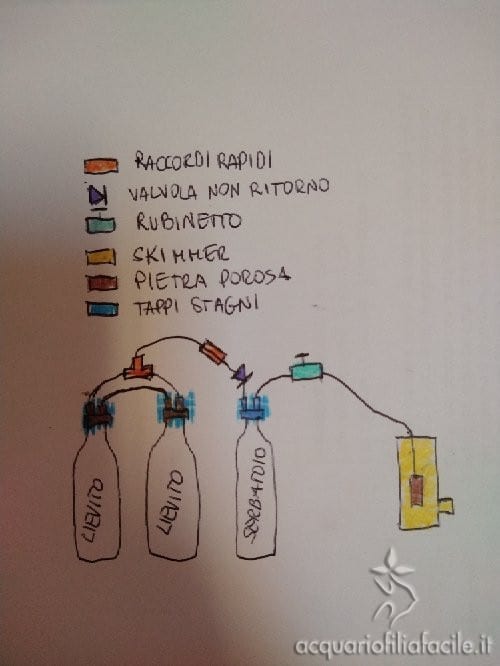 RACCORDI RAPIDI
VALVOLA NON RITORNO
RUBINETTO
SKIMMER
PIETRA POROSA
TAPPI STAGNI
LIEVITO
LIEVITO
SERBATOIO
acquariofiliafacile.it